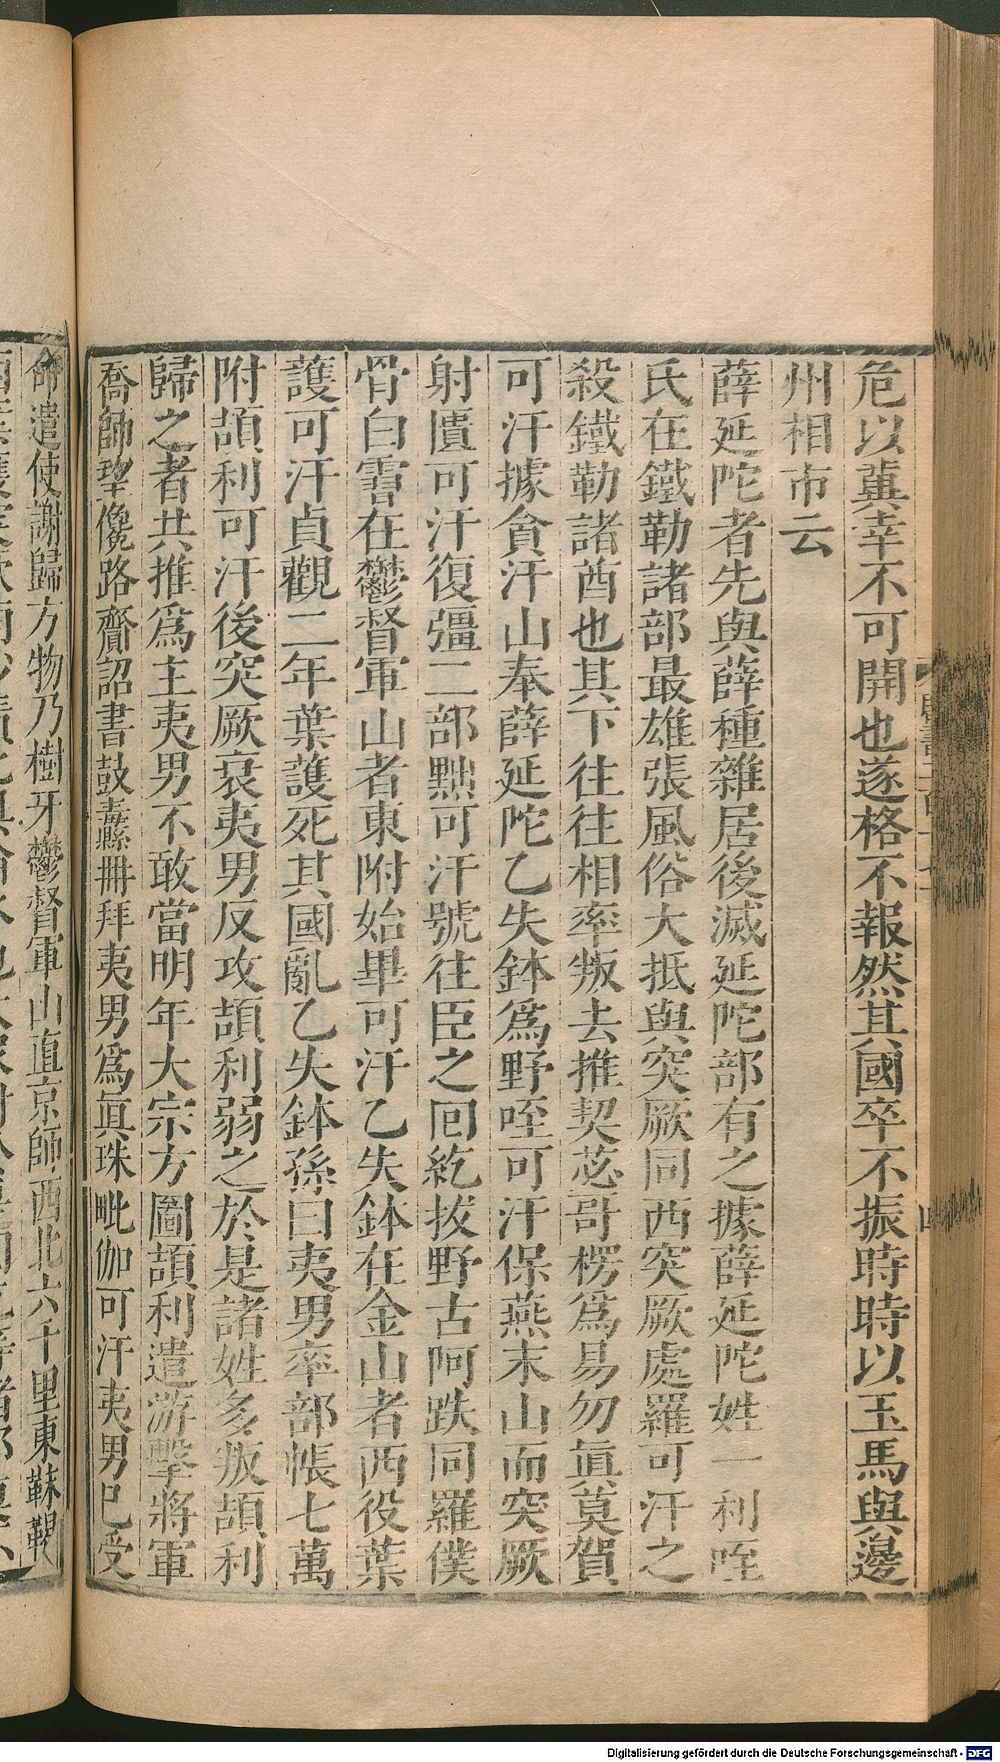 危以冀幸不可開也遂格不報然其國卒不振時時以玉馬與邊
州相市云
薛延陀者先與薛種雜居後滅延陀部有之據薛延陀姓一利咥
氏在鐵勒諸部最雄張風俗大抵與突厥同西突厥處羅可汗之
殺鐵勒諸酋也其下往往相率叛去推契苾哥楞爲易勿眞莫賀
可汗據貪汗山奉薛延陀乙失鉢爲野咥可汗保燕末山而突厥
射匱可汗復彊二部黜可汗號往臣之回紇拔野古阿跌同羅僕
骨白霫在鬱督軍山者東附始畢可汗乙失鉢在金山者西役葉
護可汗貞觀二年葉護死其國亂乙失鉢孫曰夷男率部帳七萬
附頡利可汗後突厥衰夷男反攻頡利弱之於是諸姓多叛頡利
歸之者共推爲主夷男不敢當明年大宗方圖頡利遣游擊將軍
喬師望儳路齎詔書鼓纛冊拜夷男爲眞珠毗伽可汗夷男已受
命遣使謝歸方物乃樹牙鬱督軍山直京師西北六千里東靺鞨
Digitalisierung gefördert durch die Deutsche Forschungsgemeinschaft - DFG